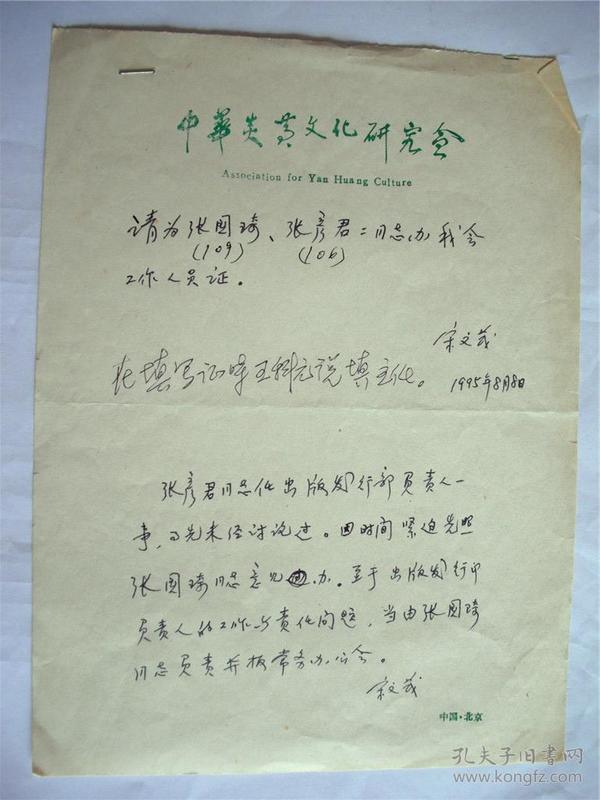 中华炎黄文化研究会
Association for Yan Huang Culture
请为张国琦、张彦君二同志办我会
(109) (106)
工作人员证。
宋文茂
在填写证时王科元说填主任。
1995年8月8日
张彦君同志任出版发行部负责人一
事，事先未经讨论过。因时间紧迫先照
张国琦同志意见办。至于出版发行部
负责人的工作与责任问题，当由张国琦
同志负责并报常务办公会。
宋文茂
中国·北京
孔夫子旧书网
www.kongfz.com